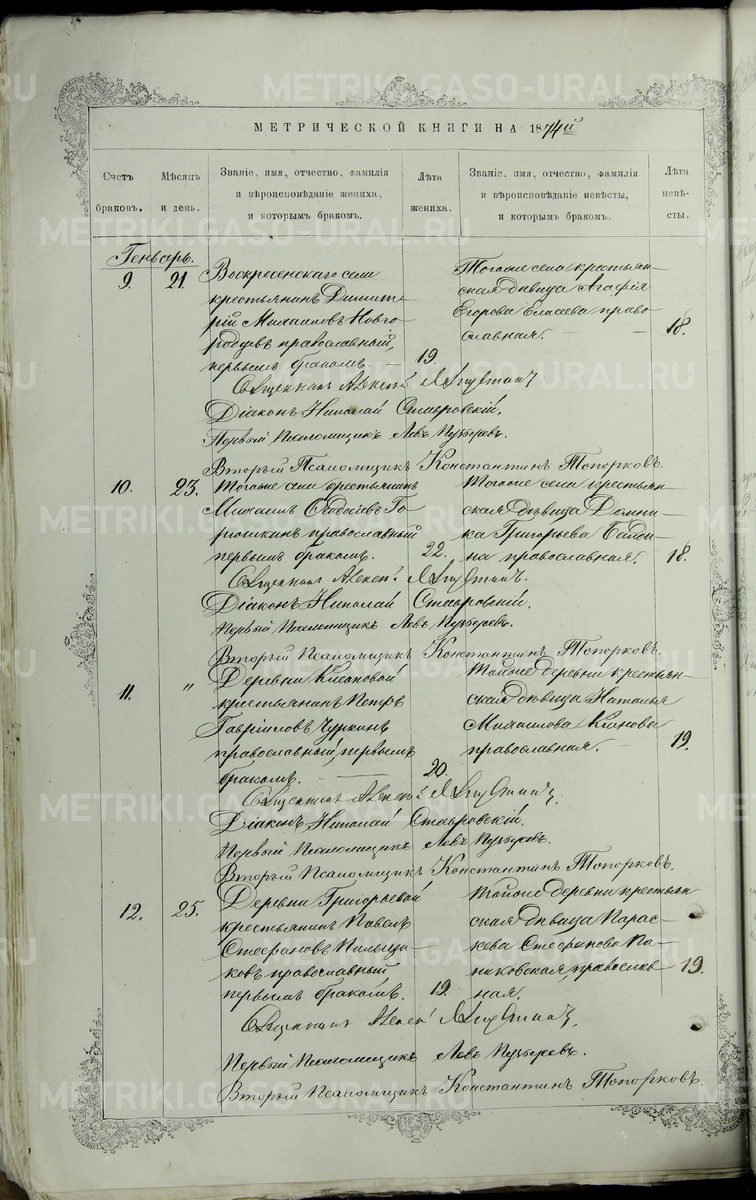 МЕТРИЧЕСКОЙ КНИГИ НА 1874й
Счетъ браковъ.
Мѣсяцъ и день.
Званіе, имя, отчество, фамилія и вѣроисповѣданіе жениха, и которымъ бракомъ.
Лѣта жениха.
Званіе, имя, отчество, фамилія и вѣроисповѣданіе невѣсты, и которымъ бракомъ.
Лѣта невѣсты.
Генварь.
9. 21
Воскресенскаго села
крестьянинъ Димит-
рій Михаиловъ Новго-
родцевъ православный,
первымъ бракомъ. 19.
Тогоже села крестьян-
ская дѣвица Агафія
Егорова Елисеева право-
славная. 18.
Священникъ Алексѣй
Діаконъ Николай Ставровскій.
Первый Псаломщикъ Левъ Пузыревъ.
Второй Псаломщикъ Константинъ Топорковъ.
10. 23.
Тогоже села крестьянинъ
Михаилъ Го-
православный
первымъ бракомъ. 22.
Тогоже села крестьян-
ская дѣвица Домни-
ка Григорьева
на православная. 18.
Священникъ Алексѣй
Діаконъ Николай Ставровскій.
Первый Псаломщикъ Левъ Пузыревъ.
Второй Псаломщикъ Константинъ Топорковъ.
11. "
Деревни
крестьянинъ Петръ
Гавріиловъ Чуркинъ
православный, первымъ
бракомъ. 20.
Тойже деревни крестьян-
ская дѣвица Наталья
Михаилова
православная. 19.
Священникъ Алексѣй
Діаконъ Николай Ставровскій.
Первый Псаломщикъ Левъ Пузыревъ.
Второй Псаломщикъ Константинъ Топорковъ.
12. 25.
Деревни Григорьевой
крестьянинъ Павелъ
Стефановъ Пильщи-
ковъ православный
первымъ бракомъ. 19.
Тойже деревни крестьян
ская дѣвица Парас-
кева Стефанова Па-
никовская, православ
ная. 19.
Священникъ Алексѣй
Первый Псаломщикъ Левъ Пузыревъ.
Второй Псаломщикъ Константинъ Топорковъ.
METRIKI.GASO-URAL.RU